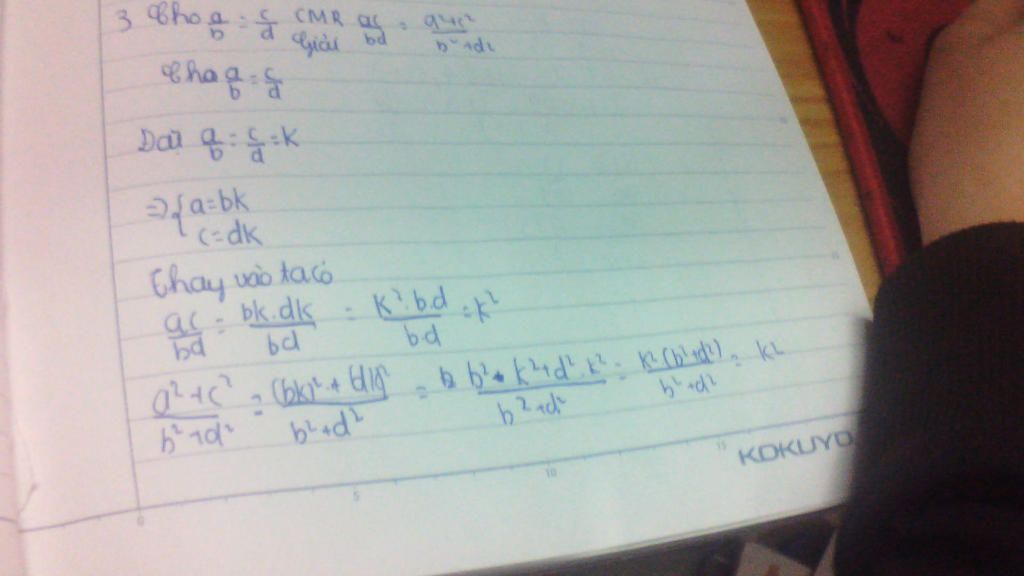 3 Cho a/b = c/d CMR ac/bd = a²+c²/b²+d²
Giải
Cho a/b = c/d
Đặt a/b = c/d = k
=> { a=bk
c=dk
Thay vào ta có
ac/bd = bk.dk/bd = k².b.d/b.d = k²
a²+c²/b²+d² = (bk)²+(dk)²/b²+d² = b².k²+d².k²/b²+d² = k²(b²+d²)/b²+d² = k²
KOKUYO
0 5 10 15